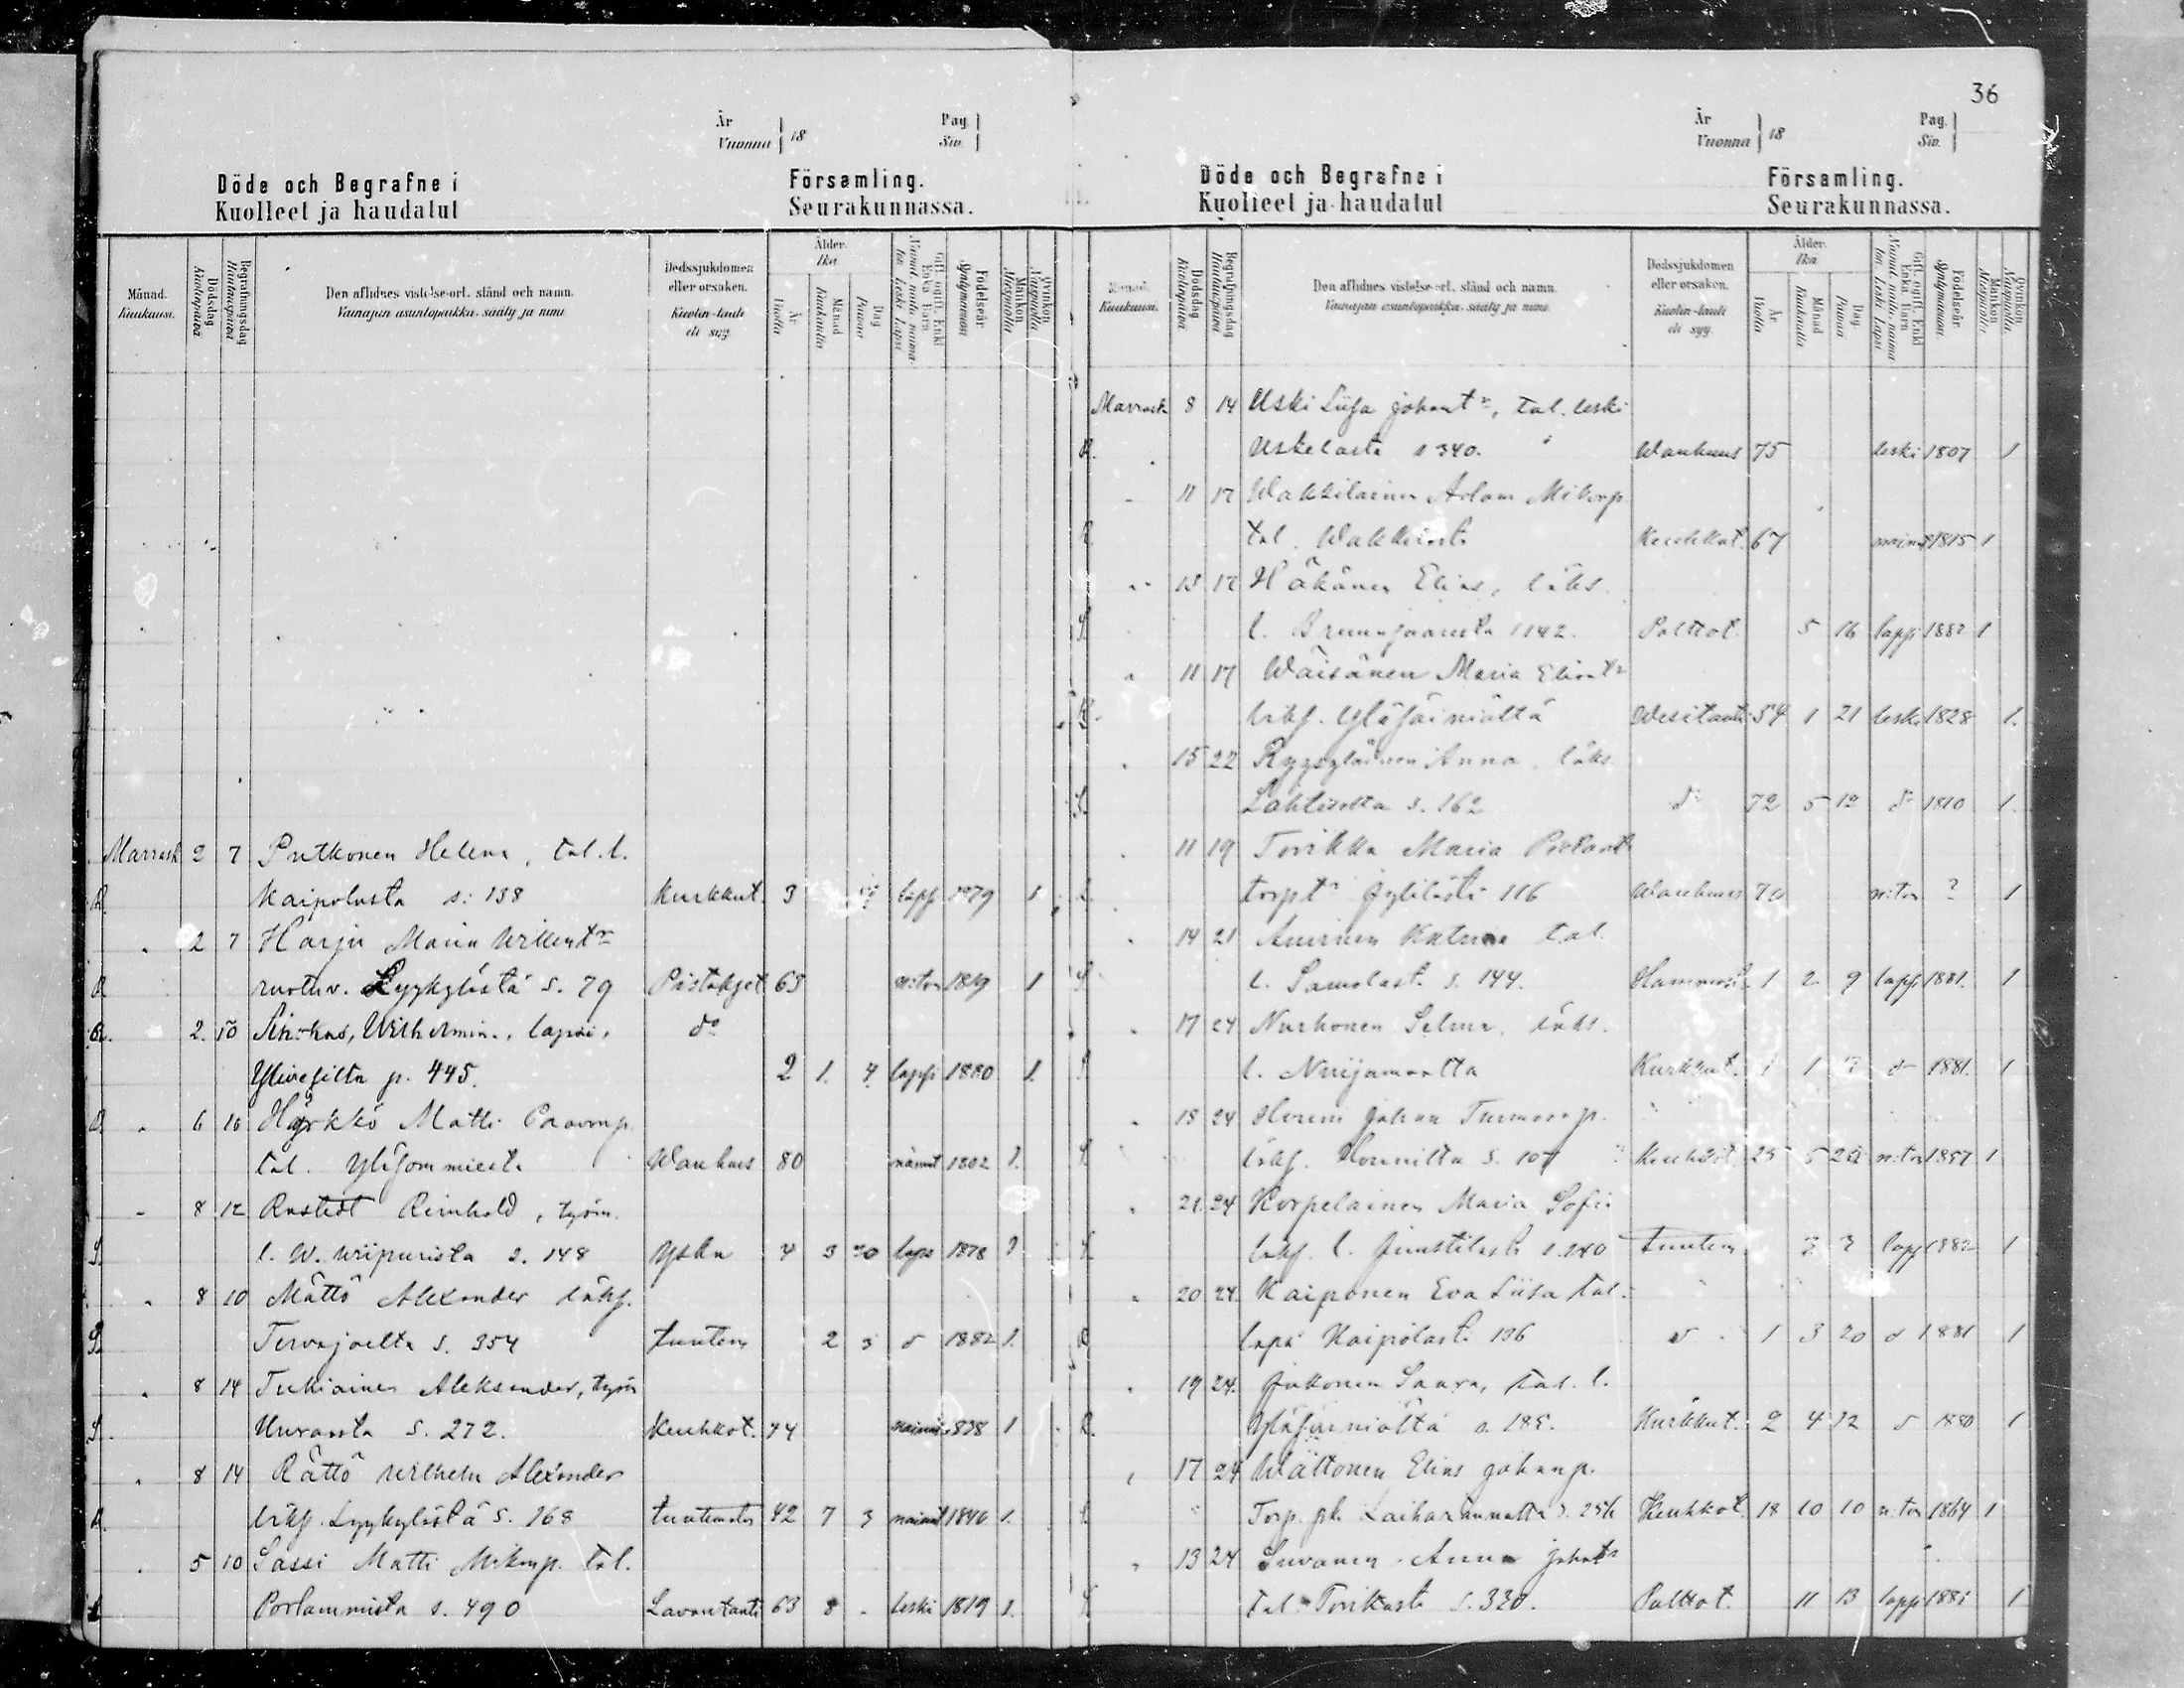 År Vuonna 18
Pag. Siv.
Döde och Begrafne i Församling.
Kuolleet ja haudatut Seurakunnassa.
Månad. Kuukausi.
Dödsdag Kuolinpäivä
Begrafningsdag Hautauspäivä
Den aflidnes vistelse-ort, stånd och namn.
Vainajan asuntopaikka, sääty ja nimi
Dödssjukdomen eller orsaken.
Kuolin-tauti eli syy.
Ålder. Ikä
År Vuotta
Månad Kuukautta
Dag Päivää
Gift, ogift, Enkl. Enka, Barn
Födelseår Syntymävuosi
Mankön Miespuolta
Qvinkön Vaimopuolta
Marrask 2 7 Putkonen Helena, tal. l.
R. Kaipolasta s. 138 Kurkkut. 3 laps. 1879 1
2 7 Harju Maria Willentr
R ruotuv. Lyykylästä s. 79 Pistokset 63 n:ton 1819 1
R. 2. 10 Wilhelmin., lapsi, do
Ylivesiltä p. 445. 2 1. 7 lapsi 1880 1.
R 6 16 Hyrkkö Matti Paavonp.
tal. Yläsommeesta Wanhuus 80 nainut 1802 1.
8 12 Rustedt Reinhold, työm.
S. l. W. Wiipurista s. 148 Yskä 4 3 20 laps 1878 1
8 10 Mättö Alexander läks.
S. Tervajoelta s. 354 tuntem 2 3 d 1882 1.
8 14 Tukiainen Aleksander, työm
S. Uuraasta s. 272. Keuhkot. 44 nainut 1838 1
8 14 Rättö Wilhelm Alexander
R. läks. Lyykylästä s. 168 tuntematon 42 7 3 nainut 1840 1.
5 10 Sassi Matti Mikonp. tal.
Porlammista s. 490 Lavantauti 63 8 - leski 1819 1.
36
År Vuonna 18
Pag. Siv.
Döde och Begrafne i Församling.
Kuolleet ja haudatut Seurakunnassa.
Månad. Kuukausi.
Dödsdag Kuolinpäivä
Begrafningsdag Hautauspäivä
Den aflidnes vistelse-ort, stånd och namn.
Vainajan asuntopaikka, sääty ja nimi
Dödssjukdomen eller orsaken.
Kuolin-tauti eli syy.
Ålder. Ikä
År Vuotta
Månad Kuukautta
Dag Päivää
Gift, ogift, Enkl. Enka, Barn
Födelseår Syntymävuosi
Mankön Miespuolta
Qvinkön Vaimopuolta
Marrask 8 14 Uski Liisa Johant., tal. leski
R. Uskelasta s 340. Wanhuus 75 leski 1807 1
11 17 Wakkilainen Adam Mikonp.
R tal. Keuhkot. 67 nainut 1815 1
13 17 Häkänen Elias, läks.
S. l. 1142. Polttot. 5 16 lapsi 1882 1
11 17 Wäisänen Maria Eliantr
läks. Yläsäiniöltä Wesitauti 54 1 21 leski 1828 1.
15 22 Ryysyläinen Anna läks
S. Lahtisetta s. 162 do 72 5 12 do 1810 1.
11 19 Torikka Maria
torpt. 116 Wanhuus 70 n:ton ? 1
14 21 Katrina tal.
S l. Samolast. s. 144. 1 2 9 laps 1881. 1
17 24 Nurhonen Selma läks.
S l. Nuijamaalta Kurkkut. 1 1 7 d 1881. 1
18 24 Houni Johan Tuomasp.
S läks. Hounilta s. 107 Keuhkot. 25 5 n:ton 1857 1
21. 24 Korpelainen Maria Sofia
läks. l. Juustilasta s. 240 tuntem laps 1882 1
20 24. Kaiponen Eva Liisa tal.
R lapsi Kaipolasta 136 d 1 3 20 d 1881 1
19 24. Jakonen Saara, tal. l.
R. Yläsäiniöltä s. 185. Kurkkut. 2 4 12 d 1880 1
17 24 Wättönen Elias Johanp.
Torp. pk. Laiharannalta s. Keuhkot. 18 10 10 n:ton 1864 1
13 24 Suvanen Anna Johntr
tal. Torikasta s. 320. Polttot. 11 13 lapsi 1881 1